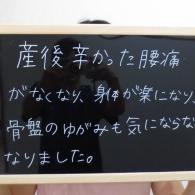 産後辛かった腰痛
がなくなり、身体が楽になり、
骨盤のゆがみも気にならなく
なりました。